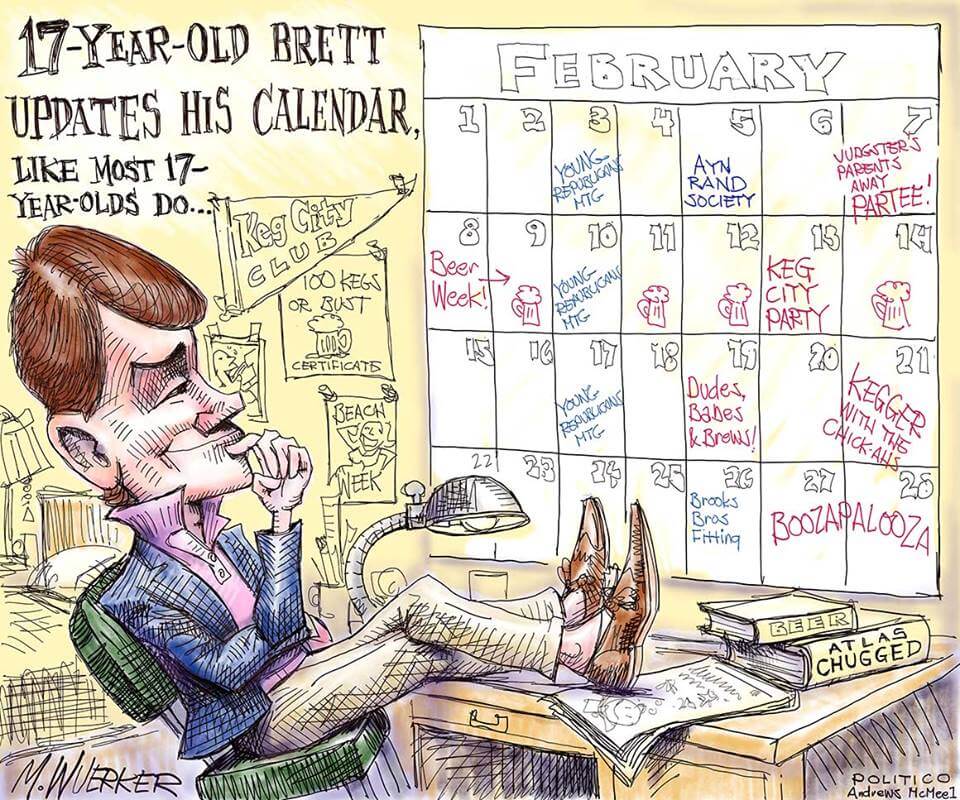 17-YEAR-OLD BRETT
UPDATES HIS CALENDAR,
LIKE MOST 17-
YEAR-OLDS DO...
FEBRUARY
1 2 3 4 5 6 7
YOUNG
REPUBLICANS
MTG
AYN
RAND
SOCIETY
JUDGSTER'S
PARENTS
AWAY
PARTEE!
8 9 10 11 12 13 14
Beer
Week!
YOUNG
REPUBLICANS
MTG
KEG
CITY
PARTY
15 16 17 18 19 20 21
YOUNG
REPUBLICANS
MTG
Dudes,
Babes
& Brews!
KEGGER
WITH THE
CHICK-AHS
22 23 24 25 26 27 28
Brooks
Bros
Fitting
BOOZAPALOOZA
Keg City
CLUB
100 KEGS
OR BUST
CERTIFICATE
BEACH
WEEK
BEER
ATLAS
CHUGGED
M. WUERKER
POLITICO
Andrews McMeel